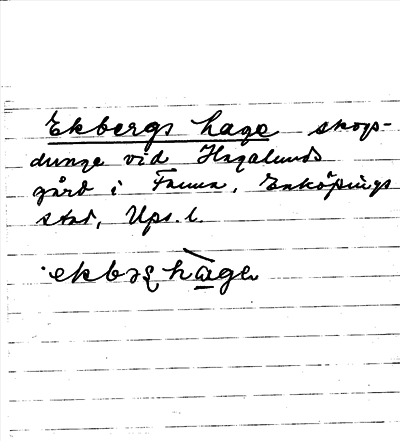 Ekbergs hage skogs-
dunge vid Hagalunds
gård i Fanna, Enköpings
stad, Ups. l.